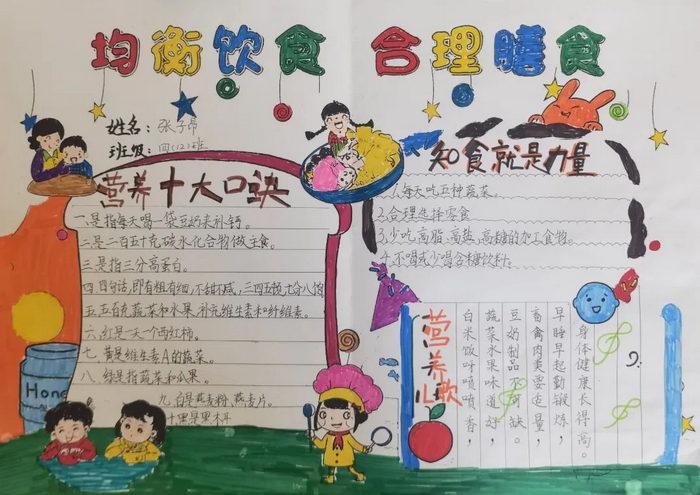 均衡饮食 合理膳食
姓名：张子昂
班级：四(12)班
营养十大口诀
一.是指每天喝一袋豆奶来补钙。
二.是二百五十克碳水化合物做主食。
三.是指三分高蛋白。
四.四句话,即有粗有细,不甜不咸,三四五顿七分八饱
五.五百克蔬菜和水果,补充维生素和纤维素。
六.红是一天一个西红柿。
七.黄是维生素A的蔬菜。
八.绿是指蔬菜和瓜果。
九.白是燕麦粉.燕麦片。
十黑是黑木耳
Hone
知食就是力量
1.每天吃五种蔬菜。
2.合理选择零食
3.少吃高脂、高盐,高糖的加工食物。
4.不喝或少喝含糖饮料。
营养儿歌
白米饭呀喷喷香，
蔬菜水果味道好，
豆奶制品不可缺。
畜禽肉类要适量，
早睡早起勤锻炼，
身体健康长得高。